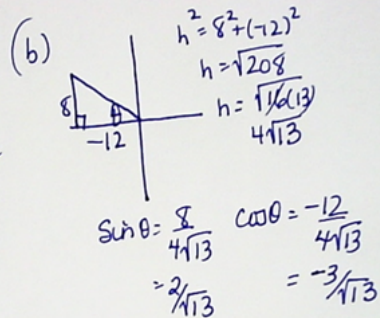 (b)
h² = 8² + (-12)²
h = √208
h = √16(13)
4√13
8
θ
-12
Sin θ = 8/4√13
= 2/√13
cos θ = -12/4√13
= -3/√13